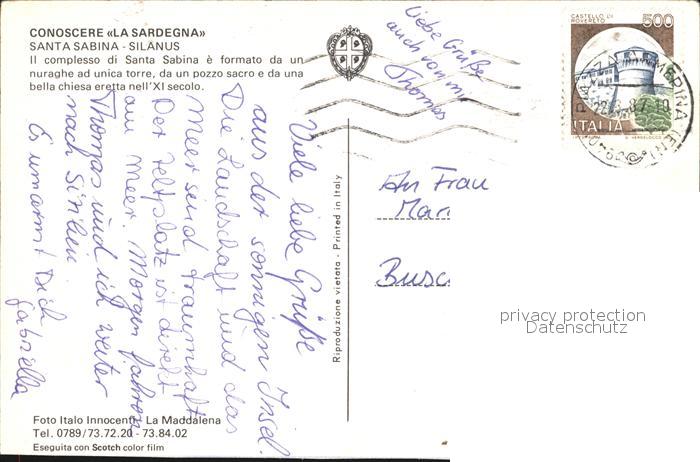 CONOSCERE «LA SARDEGNA»
SANTA SABINA - SILANUS
Il complesso di Santa Sabina è formato da un
nuraghe ad unica torre, da un pozzo sacro e da una
bella chiesa eretta nell'XI secolo.
Viele liebe Grüße
aus der sonnigen Insel.
Die Landschaft und das
Meer sind traumhaft
Der Zeltplatz ist direkt
am Meer. Morgen fahren
Thomas und ich weiter
nach Sizilien
Es umarmt Dich
Gabriella
liebe Grüße
auch von mir
Thomas
CASTELLO DI
ROVERETO
500
ITALIA
PIAZZA ARMERINA (EN)
Riproduzione vietata - Printed in Italy
An Frau
Mari
Busc
privacy protection
Datenschutz
Foto Italo Innocenti - La Maddalena
Tel. 0789/73.72.20 - 73.84.02
Eseguita con Scotch color film